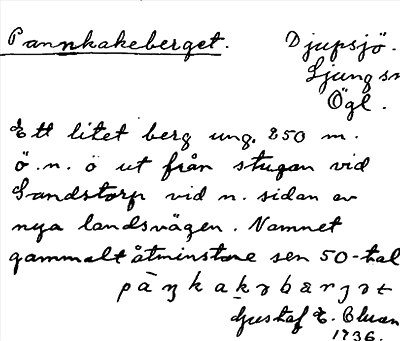 Pannkakeberget. Djupsjö.
Ljungsn
Ögl.
Ett litet berg ung. 250 m.
ö.n.ö ut från stugan vid
Sandstorp vid n. sidan av
nya landsvägen. Namnet
gammalt åtminstone sen 50-tal
Gustaf E.
1936.